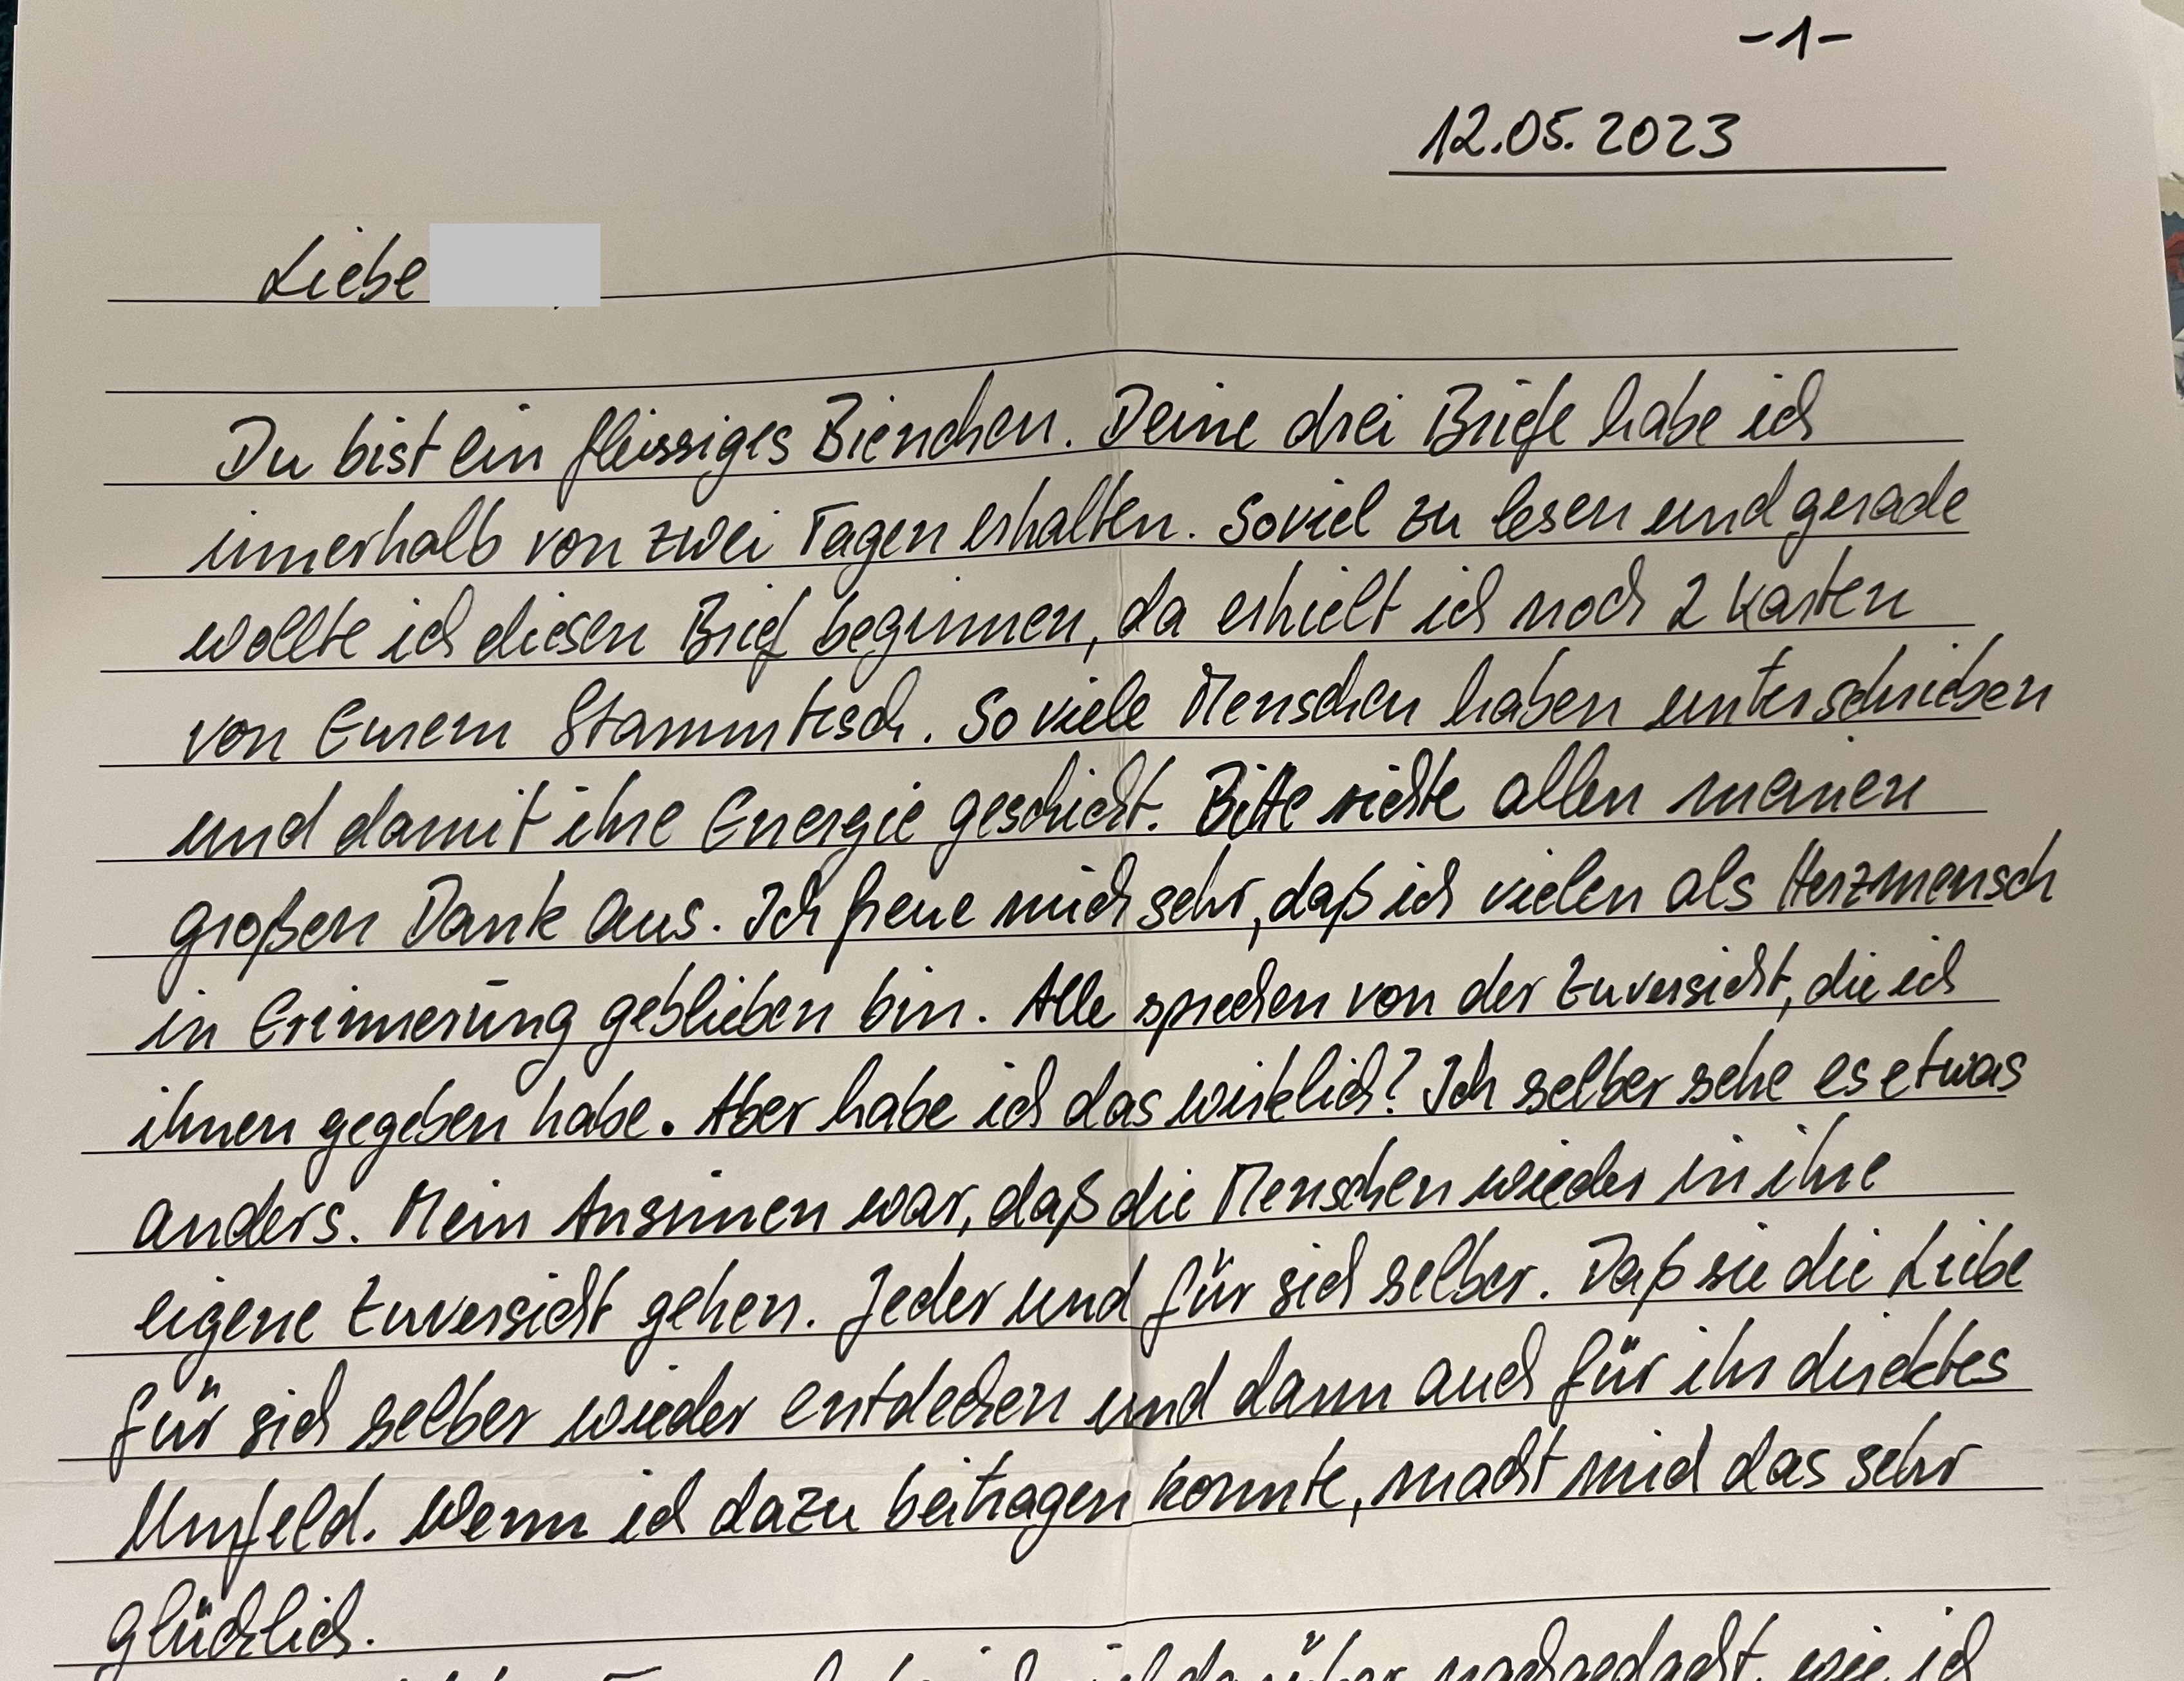 -1-
12.05.2023
Liebe ,
Du bist ein fleissiges Bienchen. Deine drei Briefe habe ich
innerhalb von zwei Tagen erhalten. Soviel zu lesen und gerade
wollte ich diesen Brief beginnen, da erhielt ich noch 2 Karten
von Eurem Stammtisch. So viele Menschen haben unterschrieben
und damit ihre Energie geschickt. Bitte richte allen meinen
großen Dank aus. Ich freue mich sehr, daß ich vielen als Herzmensch
in Erinnerung geblieben bin. Alle sprechen von der Zuversicht, die ich
ihnen gegeben habe. Aber habe ich das wirklich? Ich selber sehe es etwas
anders. Mein Ansinnen war, daß die Menschen wieder in ihre
eigene Zuversicht gehen. Jeder und für sich selber. Daß sie die Liebe
für sich selber wieder entdecken und dann auch für ihr direktes
Umfeld. Wenn ich dazu beitragen konnte, macht mich das sehr
glücklich.
ich darüber nachgedacht, wie ich